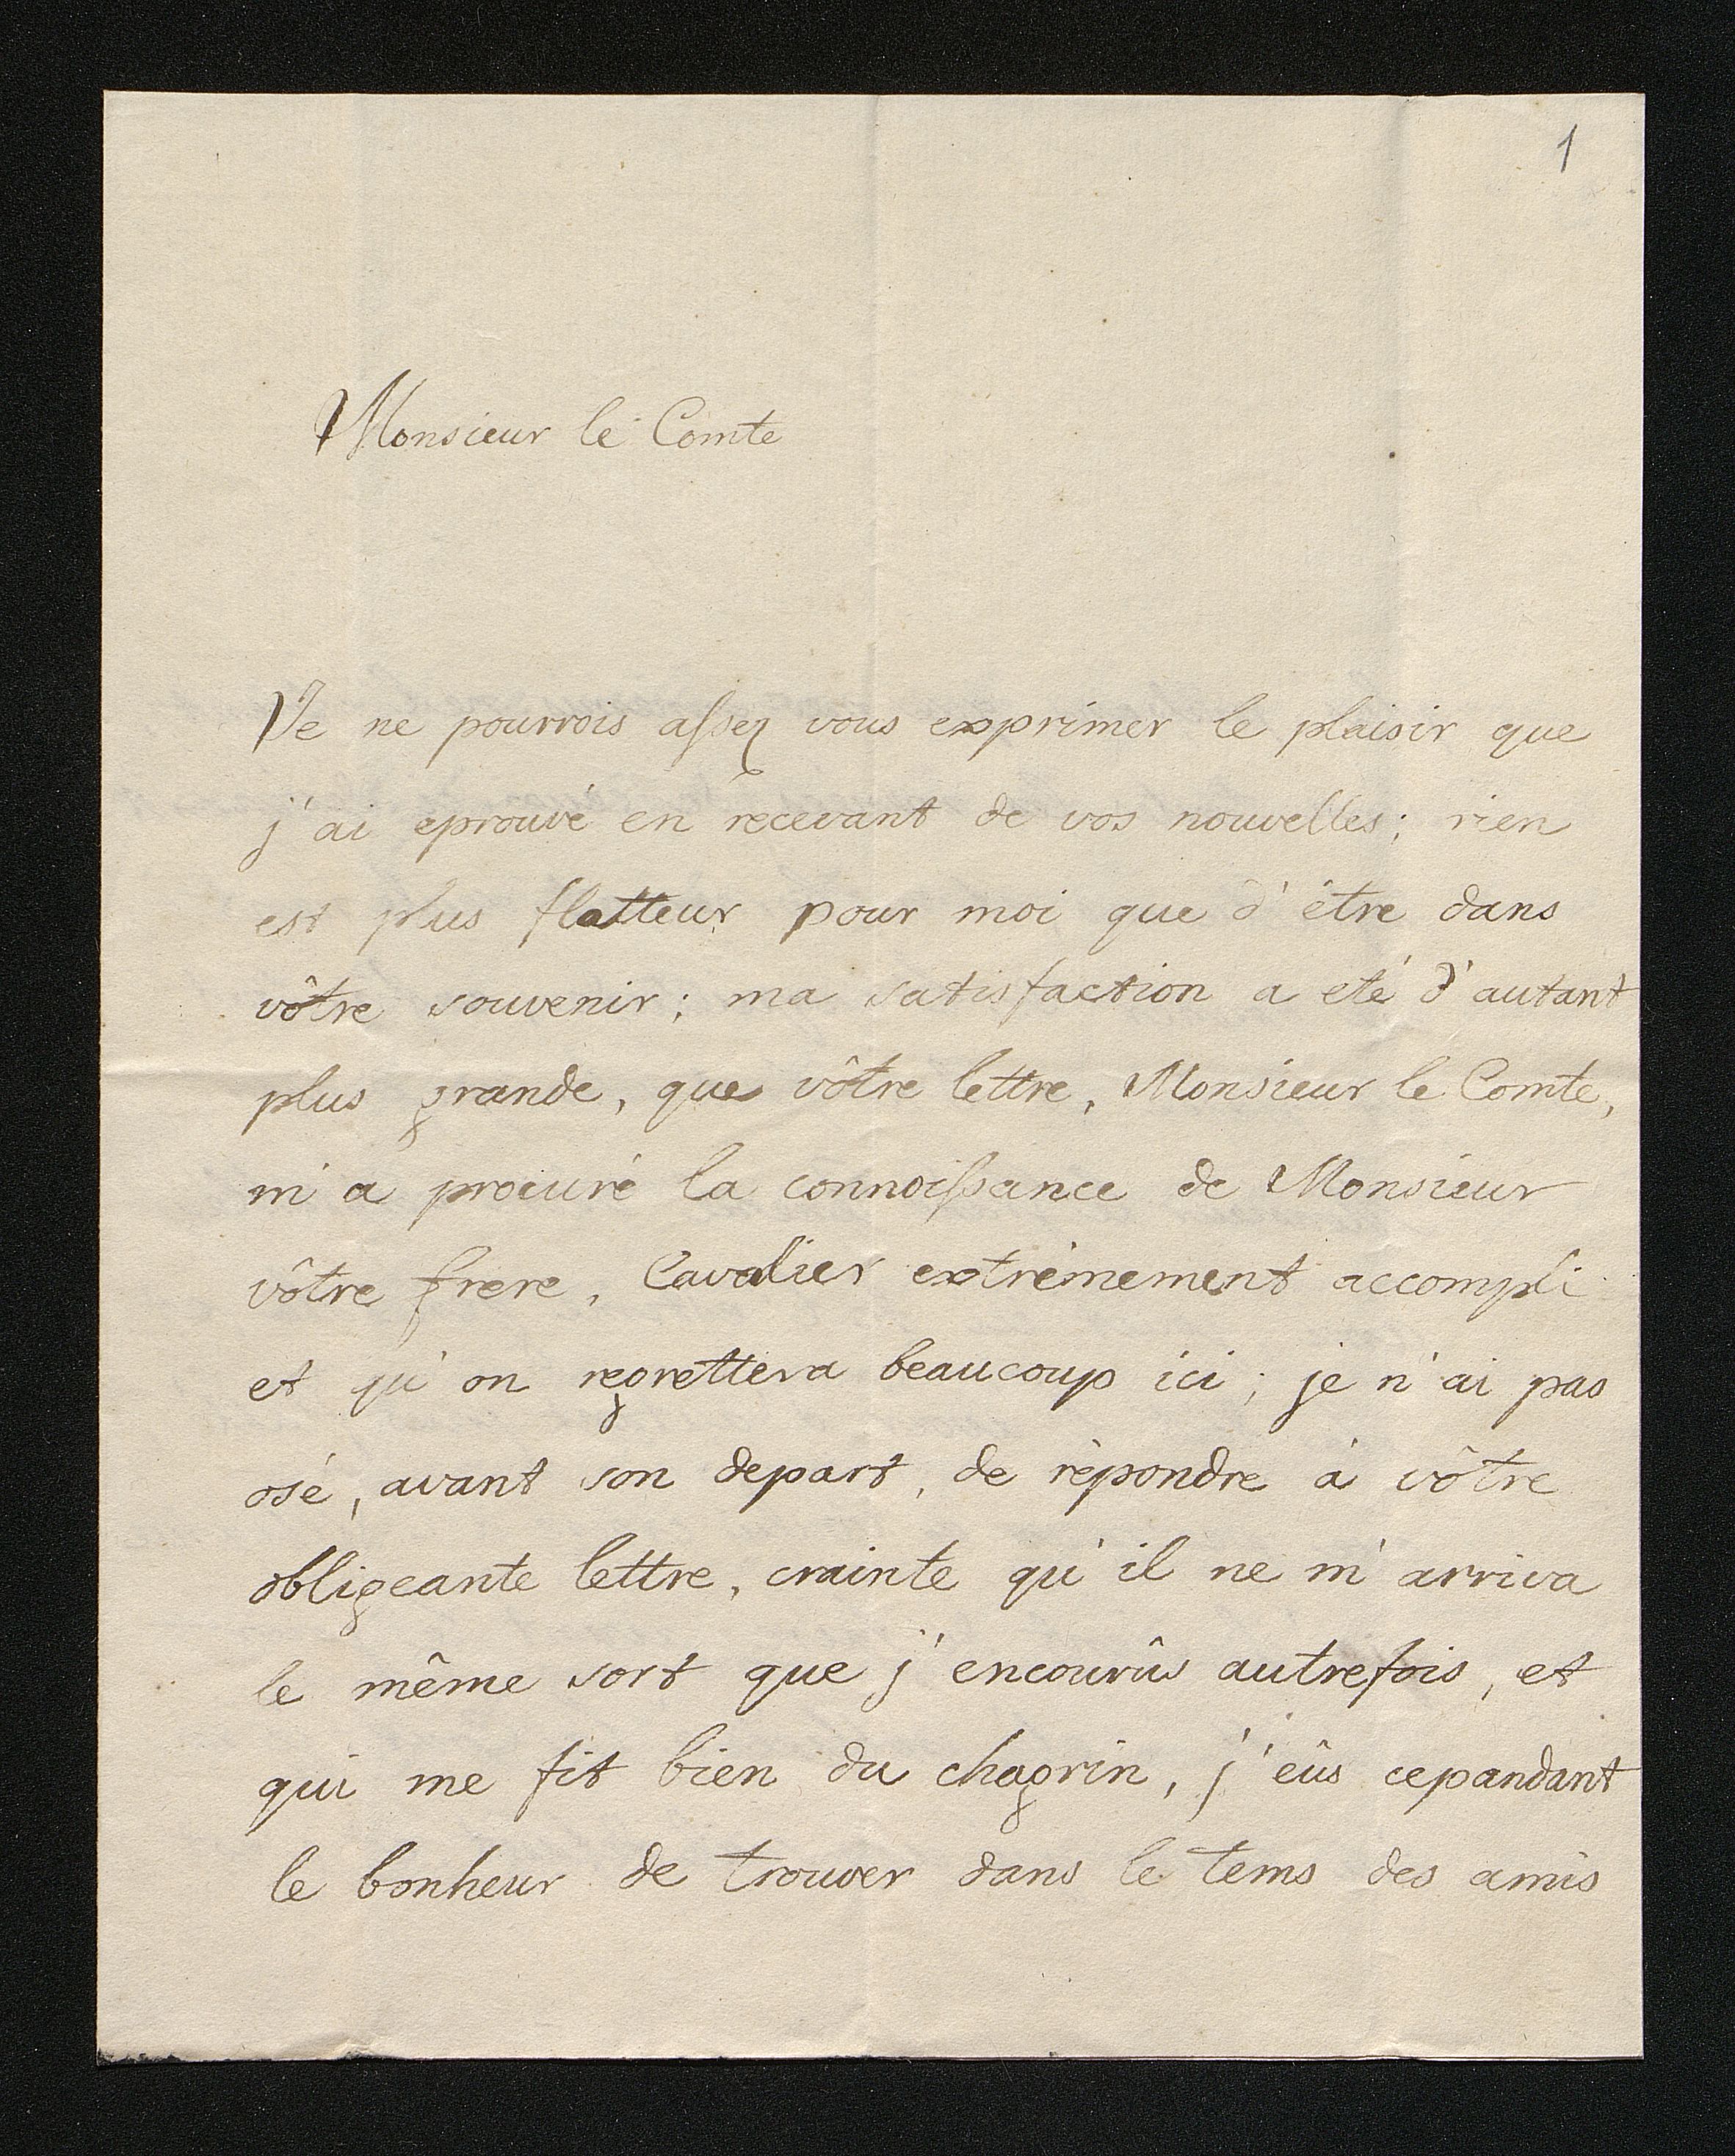 1
Monsieur le Comte
Je ne pourrois assez vous exprimer le plaisir que
j'ai eprouvé en recevant de vos nouvelles; rien
est plus flatteur pour moi que d'être dans
vôtre souvenir; ma satisfaction a eté d'autant
plus grande, que vôtre lettre, Monsieur le Comte,
m'a procuré la connoissance de Monsieur
vôtre frere, Cavalier extrêmement accompli
et qu'on regrettera beaucoup ici; je n'ai pas
osé, avant son depart, de rèpondre à vôtre
obligeante lettre, crainte qu'il ne m'arriva
le même sort que j'encourûs autrefois, et
qui me fit bien du chagrin, j'eûs cepandant
le bonheur de trouver dans le tems des amis